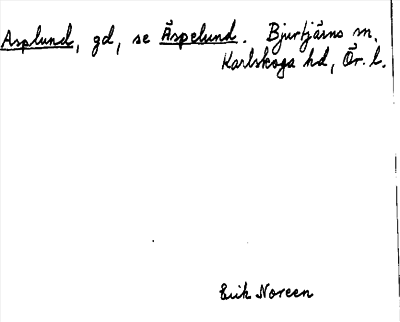 Asplund, gd, se Äspelund. Bjurtjärns sn.
Karlskoga hd, Ör. l.
Erik Noreen